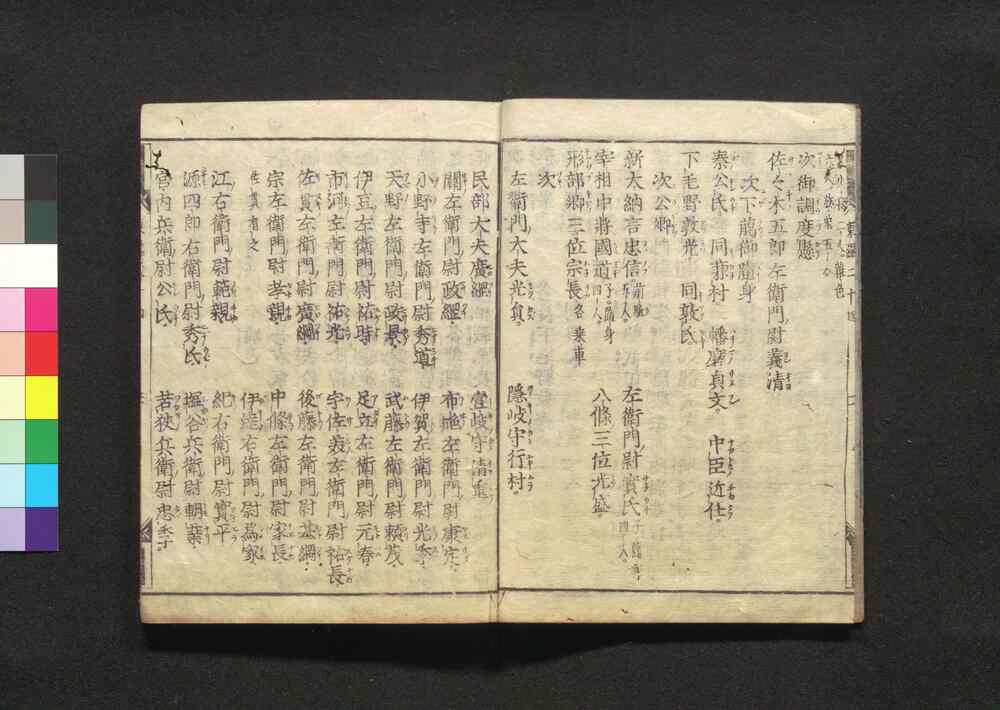 次御調度懸
佐々木五郎左衛門尉義清
次下﨟御隨身
秦公氏 同兼村 播磨貞文 中臣近仕
下毛野敦光 同敦氏
次公卿
新大納言忠信 左衛門尉實氏
宰相中將國道 八條三位光盛
刑部卿三位宗長 各乗車
次
左衛門大夫光員 隱岐守行村
民部大夫廣綱 壹岐守清重
關左衛門尉政綱 布施左衛門尉康定
小野寺左衛門尉秀道 伊賀左衛門尉光季
天野左衛門尉政景 武藤左衛門尉頼茂
伊豆左衛門尉祐時 足立左衛門尉元春
市河左衛門尉祐光 宇佐美左衛門尉祐長
佐貫左衛門尉廣綱 後藤左衛門尉基綱
宗左衛門尉孝親 中條左衛門尉家長
佐貫有之 伊達右衛門尉爲家
江右衛門尉範親 紀右衛門尉實平
源四郎右衛門尉秀氏 塩谷兵衛尉朝業
宮内兵衛尉公氏 若狹兵衛尉忠季